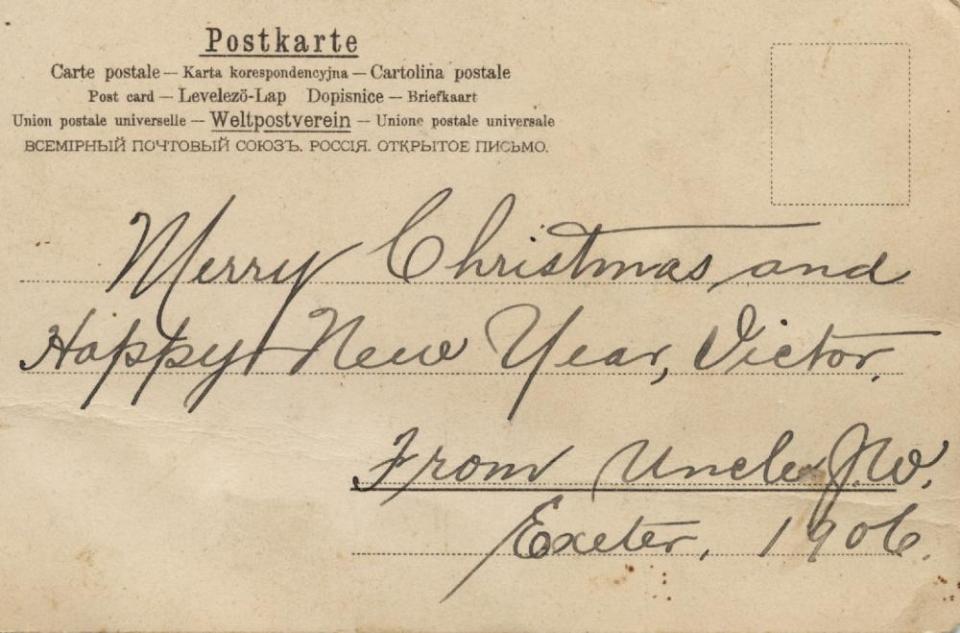 Postkarte
Carte postale — Karta korespondencyjna — Cartolina postale
Post card — Levelező-Lap Dopisnice — Briefkaart
Union postale universelle — Weltpostverein — Unione postale universale
ВСЕМІРНЫЙ ПОЧТОВЫЙ СОЮЗЪ. РОССІЯ. ОТКРЫТОЕ ПИСЬМО.
Merry Christmas and
Happy New Year, Victor.
From Uncle J.W.
Exeter, 1906.